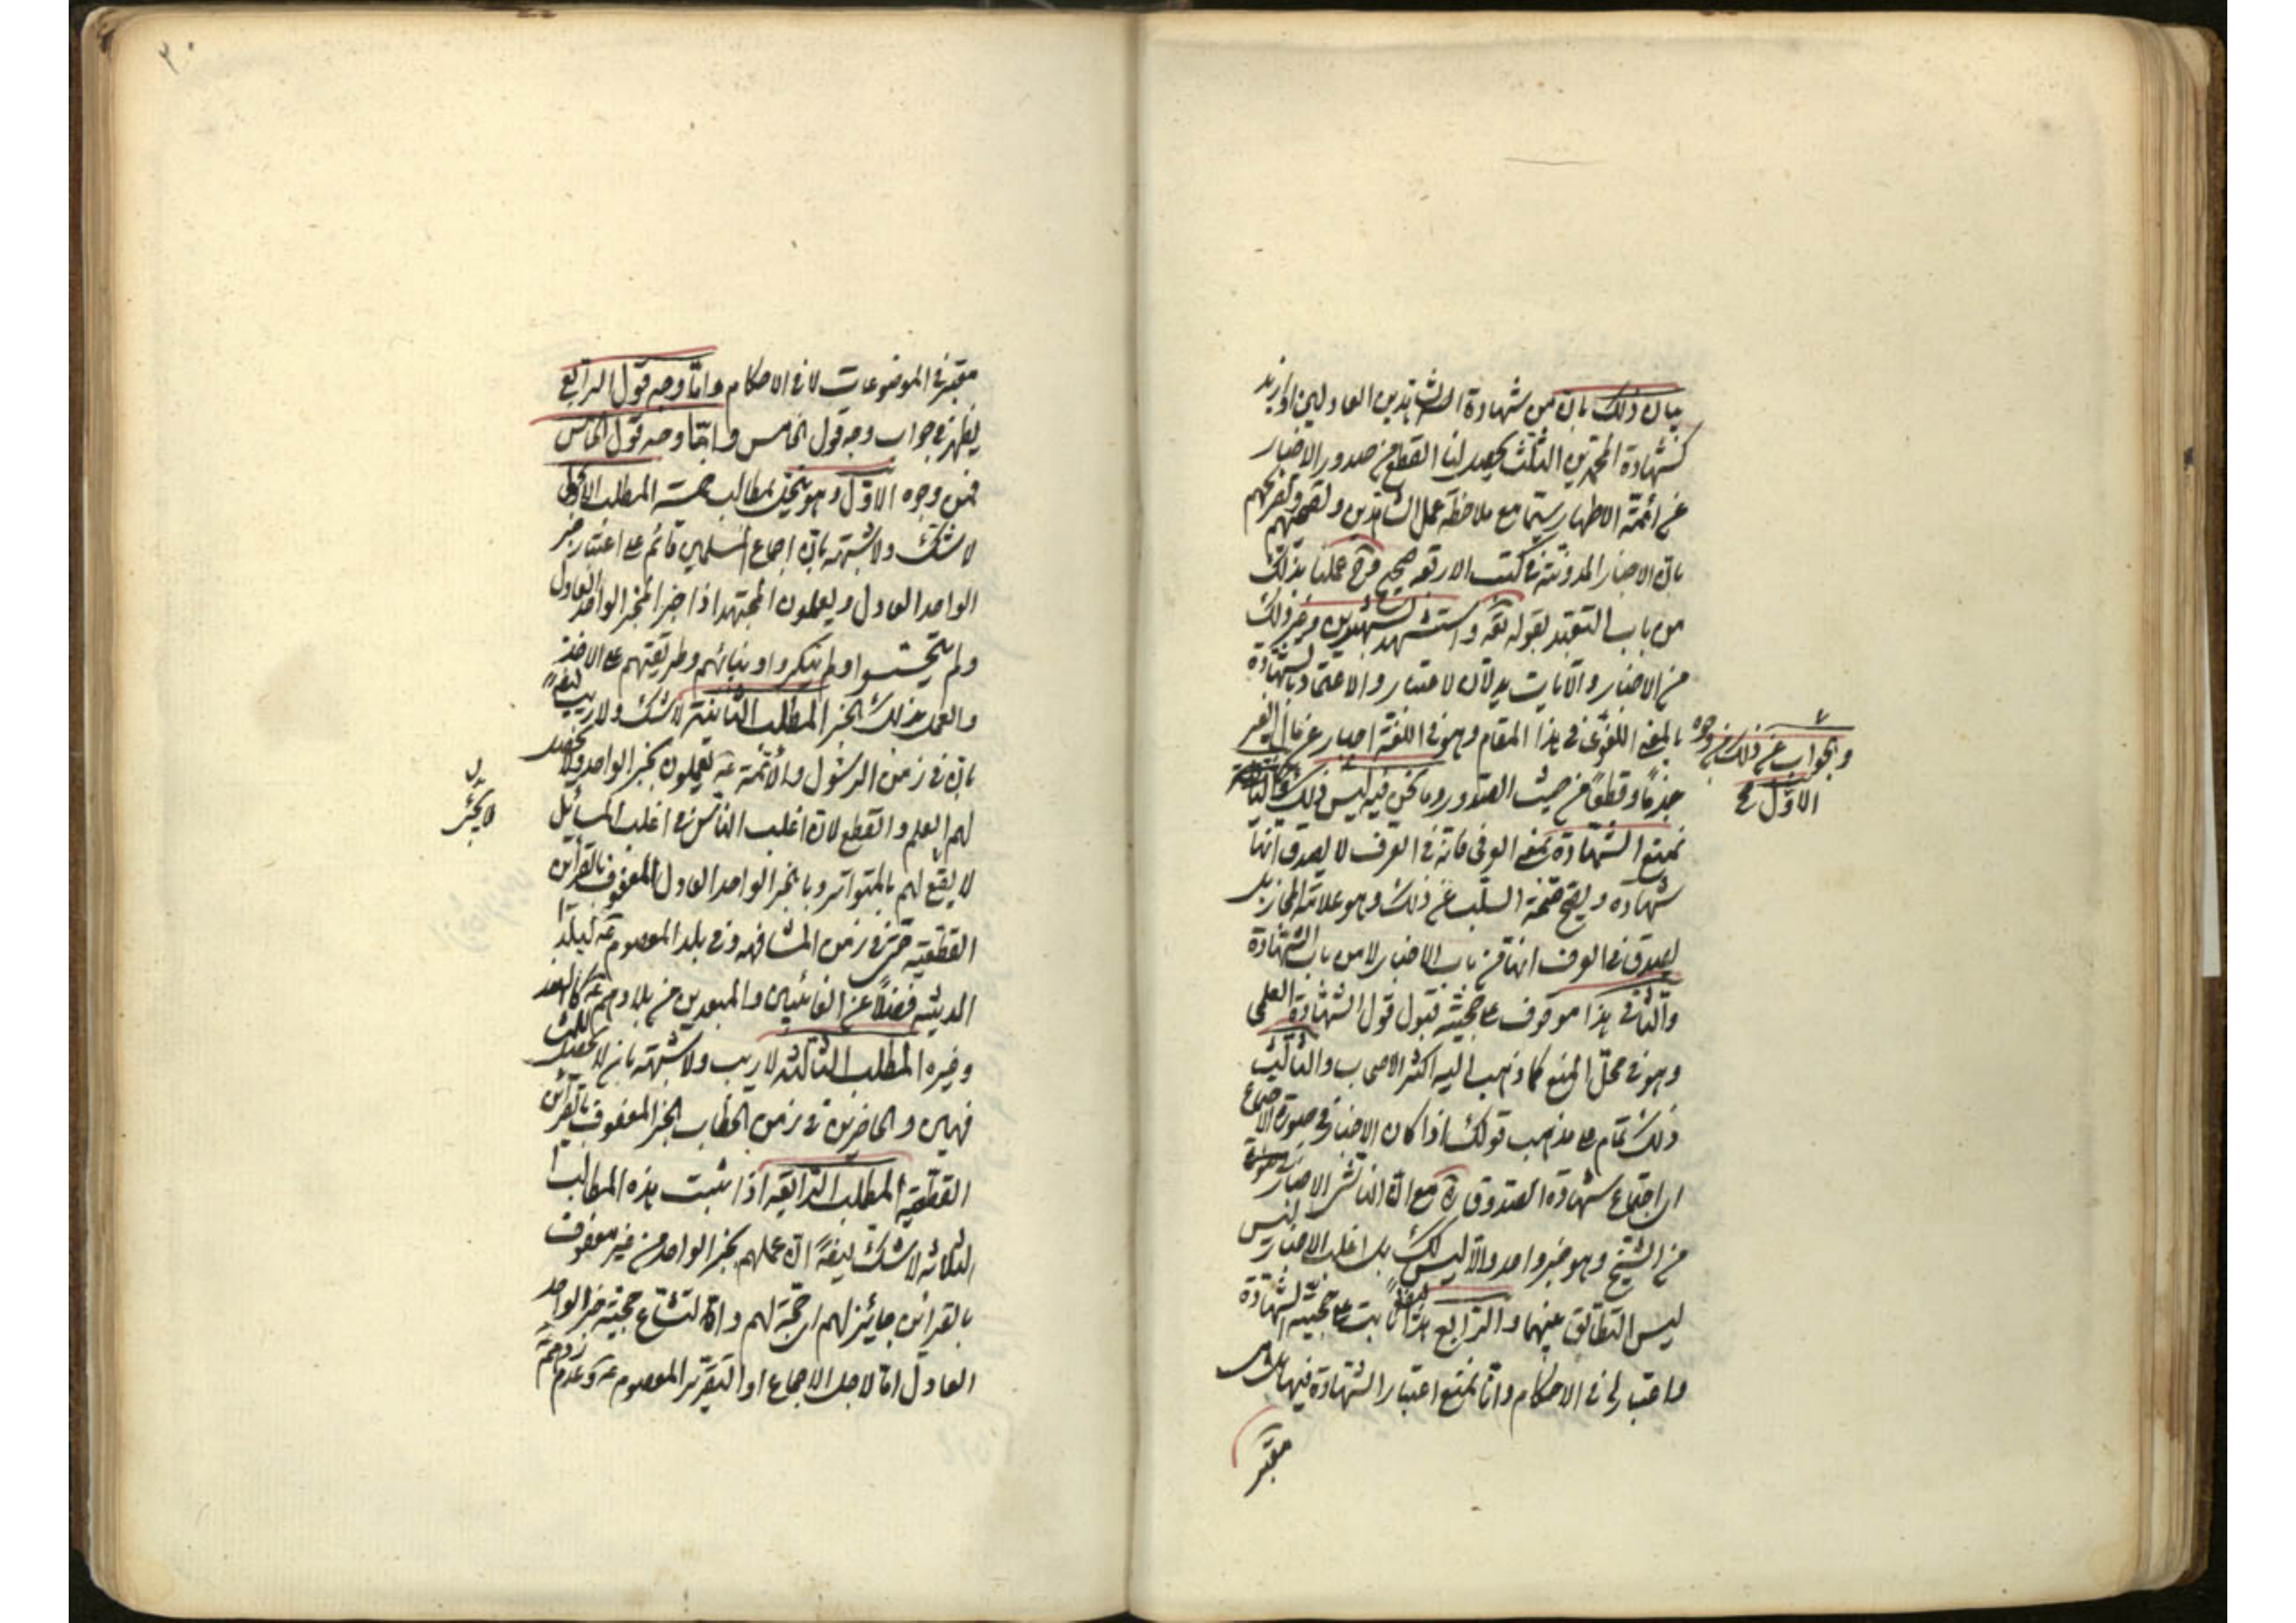 بيان ذلك بان من شهادة الشاهدين العادلين او ازيد
كشهادة المحمدين الثلث يحصل لنا القطع من صدور الاخبار
عن ائمة الاطهار سيما مع ملاحظة عمل الشاهدين وتصريحهم
بان الاخبار المدونة في كتب الاربعه صحيح عملنا بذلك
من باب التعبد بقوله تعه واستشهدوا شهيدين وغير ذلك
من الاخبار والآيات يدلان لاعتبار والاعتماد بالشهادة
بالمعنى اللغوى في هذا المقام وهو في اللغة اخبار عن مال الغير
والجواب عن ذلك من وجوه
الاول
جزماً وقطعاً من حيث الصدور وما نحن فيه ليس كذلك
نمنع الشهادة بمعنى العرفى فانه في العرف لا يصدق انها
شهادة ويصح صحة السلب عن ذلك وهو علامة المجاز بل
يصدق في العرف انها من باب الاخبار لا من باب الشهادة
والثانى هذا موقوف على حجية قبول قول الشهادة العلمى
وهو في محل المنع كما ذهب اليه اكثر الاصحاب والثالث
ذلك تمام على مذهب قولك اذا كان الاخبار في صورة الاجتماع
اى اجتماع شهادة الصدوق مع ان الناشر الاخبار
من الشيخ وهو خبر واحد والا ليس كك بل اغلب الاخبار ليس
ليس التطابق عنهما والرابع حجية الشهادة
واعتبارها في الاحكام وانا نمنع اعتبار الشهادة فيها بل هى
معتبر
معتبر في الموضوعات لا في الاحكام واما وجه قول الرابع
يظهر في جواب وجه قول الخامس واما وجه قول الخامس
فمن وجوه الاول وهو يتحقق بمطالب خمسة المطلب الاولى
لا شك ولا شبهة بان اجماع المسلمين قائم على اعتبار خبر
الواحد العادل ويعملون المجتهد اذا اخبر المخبر الواحد العادل
ولم يتجسسوا ولم ينكروا وبنائهم وطريقتهم على الاخذ
والعمل بذلك الخبر المطلب الثانية لا شك ولا ريب ايضاً
بان في زمن الرسول والأئمة عه يعملون بخبر الواحد ولا يحصل
لهم العلم والقطع لان اغلب الناس في اغلب المسائل
لا يقع لهم بالمتواتر وبالخبر الواحد العادل المحفوف بالقرائن
القطعية حتى في زمن المشافهه وفى بلد المعصوم عه كبلد
المدينة فضلاً عن الغائبين والمبعدين من بلادهم عه كالهند
وغيره المطلب الثالثه لا ريب ولا شبهة بان لا يحصل
فهمين والحاضرين في زمن الخطاب الخبر المحفوف بالقرائن
القطعية المطلب الرابعه اذا ثبت هذه المطالب
الثلاثه لا شك ايضاً ان عملهم بخبر الواحد من غير محفوف
بالقرائن جايز لهم اى حجة لهم وان حجية خبر الواحد
العادل اما لاجل الاجماع او التقرير المعصوم عه وعدم